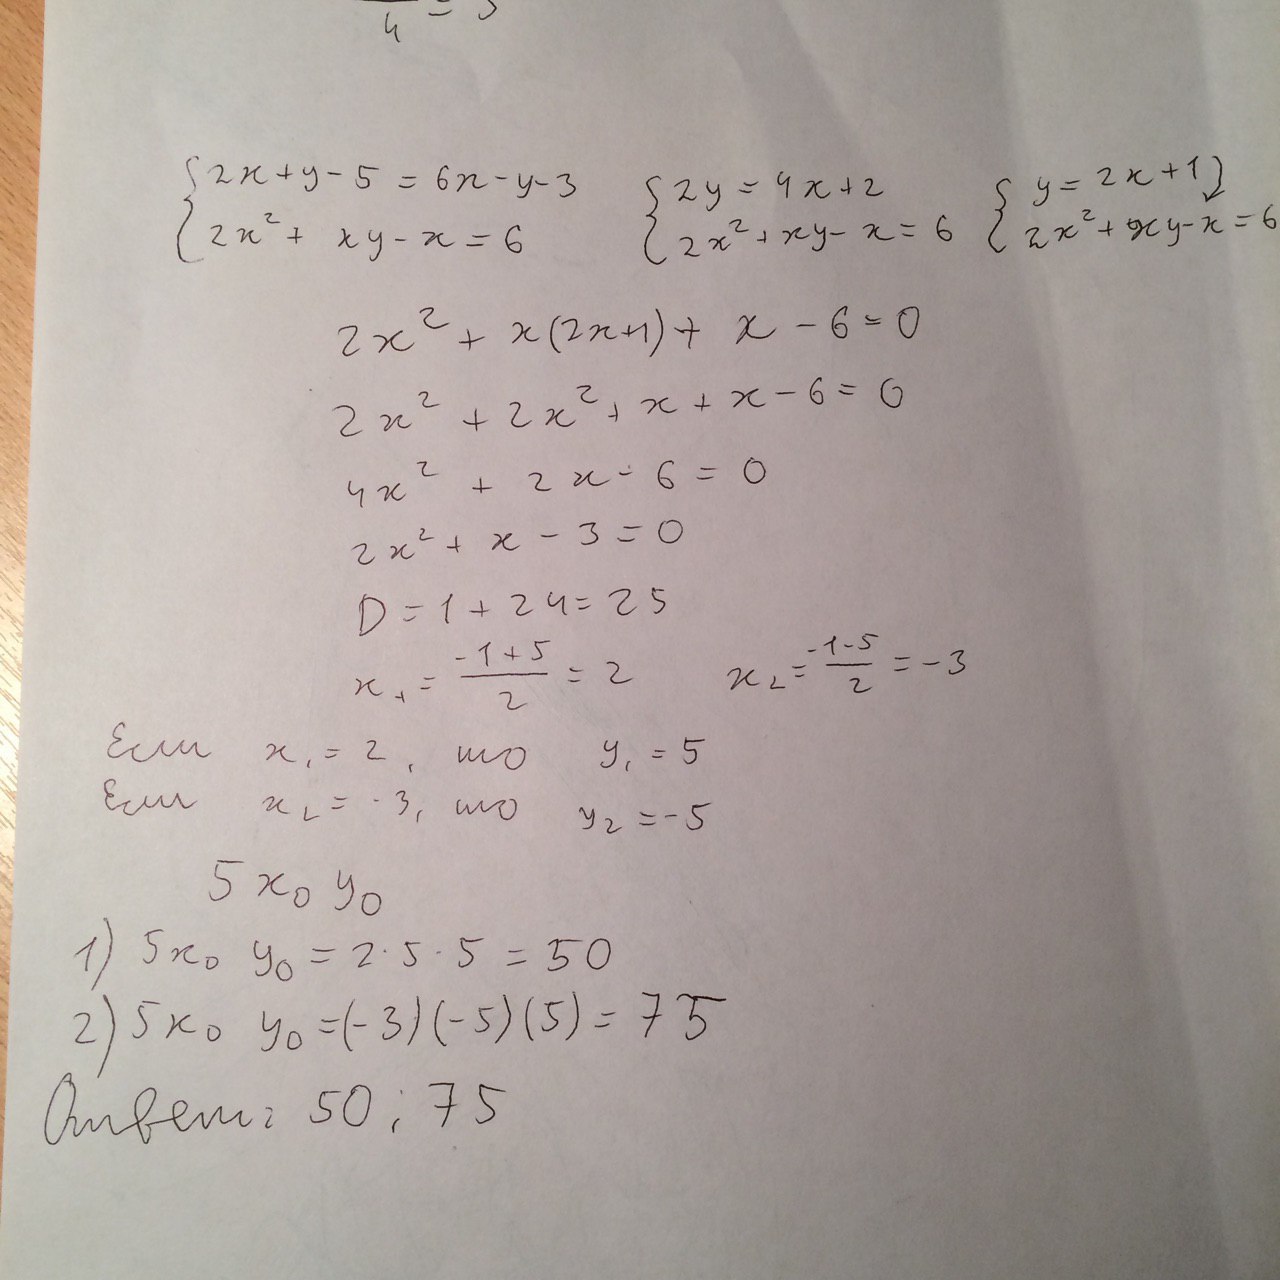 4 =
{2x+y-5 = 6x-y-3 {2y = 4x+2 {y = 2x+1
2x²+ xy-x=6 2x²+xy-x=6 2x²+xy-x=6
2x²+ x(2x+1)+ x-6=0
2x² + 2x²+x+x-6=0
4x² + 2x-6=0
2x²+x-3=0
D=1+24=25
x₁ = (-1+5)/2 = 2 x₂=(-1-5)/2=-3
Если x₁=2, то y₁=5
Если x₂=-3, то y₂=-5
5x₀y₀
1) 5x₀ y₀=2·5·5=50
2) 5x₀ y₀=(-3)(-5)(5)=75
Ответ: 50; 75